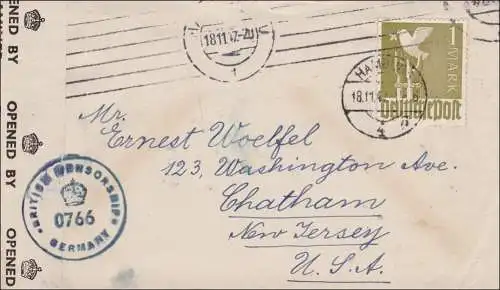 OPENED BY
OPENED BY
OPENED BY
OPENED
18.11.47.-20
1
1
MARK
HAMBURG
18.11.4
Deutsche Post
Mr.
Ernest Woelfel
123, Washington Ave.
Chatham
New Jersey
U. S. A.
BRITISH CENSORSHIP
0766
GERMANY